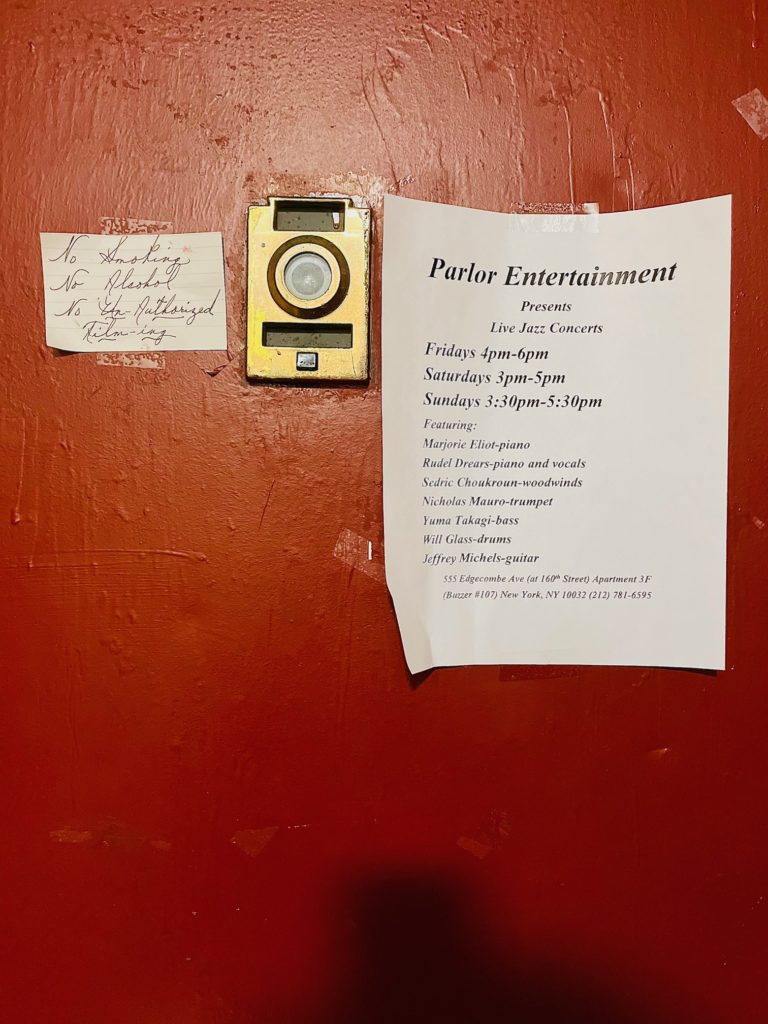 No Smoking
No Alcohol
No Un-Authorized
Film-ing
Parlor Entertainment
Presents
Live Jazz Concerts
Fridays 4pm-6pm
Saturdays 3pm-5pm
Sundays 3:30pm-5:30pm
Featuring:
Marjorie Eliot-piano
Rudel Drears-piano and vocals
Sedric Choukroun-woodwinds
Nicholas Mauro-trumpet
Yuma Takagi-bass
Will Glass-drums
Jeffrey Michels-guitar
555 Edgecombe Ave (at 160th Street) Apartment 3F
(Buzzer #107) New York, NY 10032 (212) 781-6595